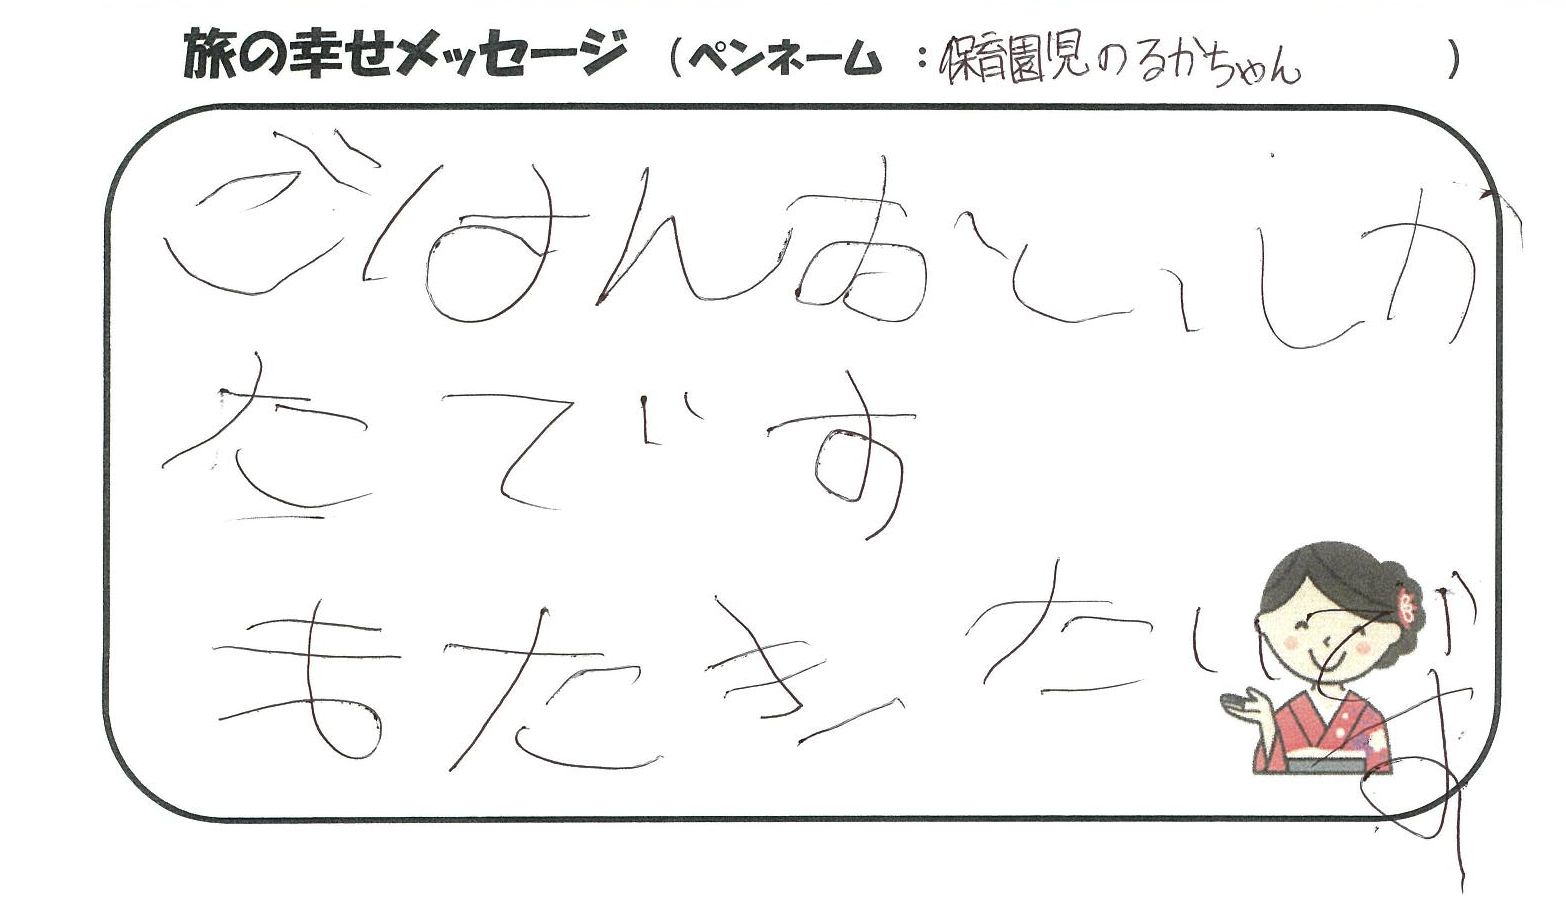 旅の幸せメッセージ (ペンネーム :保育園児のるかちゃん )
ごはんおいしか
たです
またきたいです